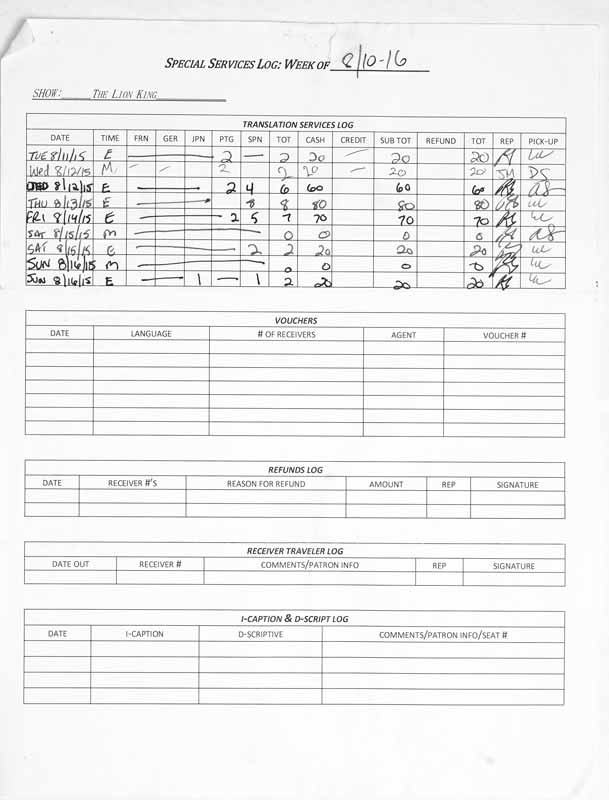 SPECIAL SERVICES LOG: WEEK OF 8/10-16
SHOW: THE LION KING
TRANSLATION SERVICES LOG
DATE TIME FRN GER JPN PTG SPN TOT CASH CREDIT SUB TOT REFUND TOT REP PICK-UP
TUE 8/11/15 E 2 — 2 20 — 20 20
Wed 8/12/15 M — — 2 2 20 — 20 20 JH DS
WED 8/12/15 E 2 4 6 60 60 60
THU 8/13/15 E 8 8 80 80 80
FRI 8/14/15 E 2 5 7 70 70 70
SAT 8/15/15 M 0 0 0 0
SAT 8/15/15 E 2 2 20 20 20
SUN 8/16/15 M 0 0 0 0
SUN 8/16/15 E — 1 — 1 2 20 20 20
VOUCHERS
DATE LANGUAGE # OF RECEIVERS AGENT VOUCHER #
REFUNDS LOG
DATE RECEIVER #'S REASON FOR REFUND AMOUNT REP SIGNATURE
RECEIVER TRAVELER LOG
DATE OUT RECEIVER # COMMENTS/PATRON INFO REP SIGNATURE
I-CAPTION & D-SCRIPT LOG
DATE I-CAPTION D-SCRIPTIVE COMMENTS/PATRON INFO/SEAT #